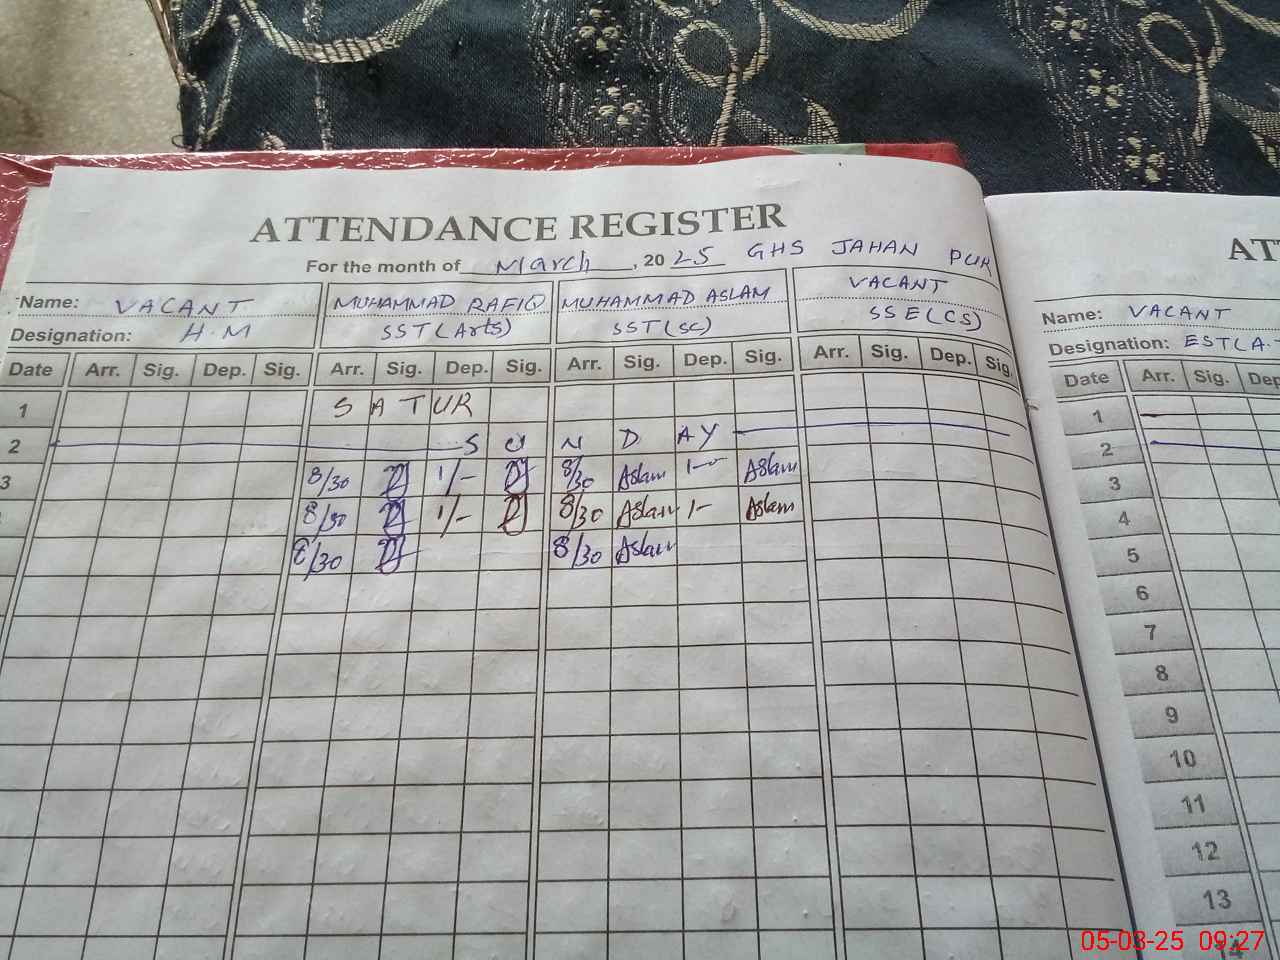 ATTENDANCE REGISTER
For the month of March, 2025 GHS JAHAN PUR
Name: VACANT MUHAMMAD RAFIQ MUHAMMAD ASLAM VACANT
Designation: H.M SST(Arts) SST(SC) SSE(CS)
Date Arr. Sig. Dep. Sig. Arr. Sig. Dep. Sig. Arr. Sig. Dep. Sig. Arr. Sig. Dep. Sig.
1 SATUR
2 SUNDAY
3 8/30 1/- 8/30 Aslam 1- Aslam
8/30 1/- 8/30 Aslam 1- Aslam
8/30 8/30 Aslam
AT
Name: VACANT
Designation: EST(A.
Date Arr. Sig. Dep
1
2
3
4
5
6
7
8
9
10
11
12
13
14
05-03-25 09:27